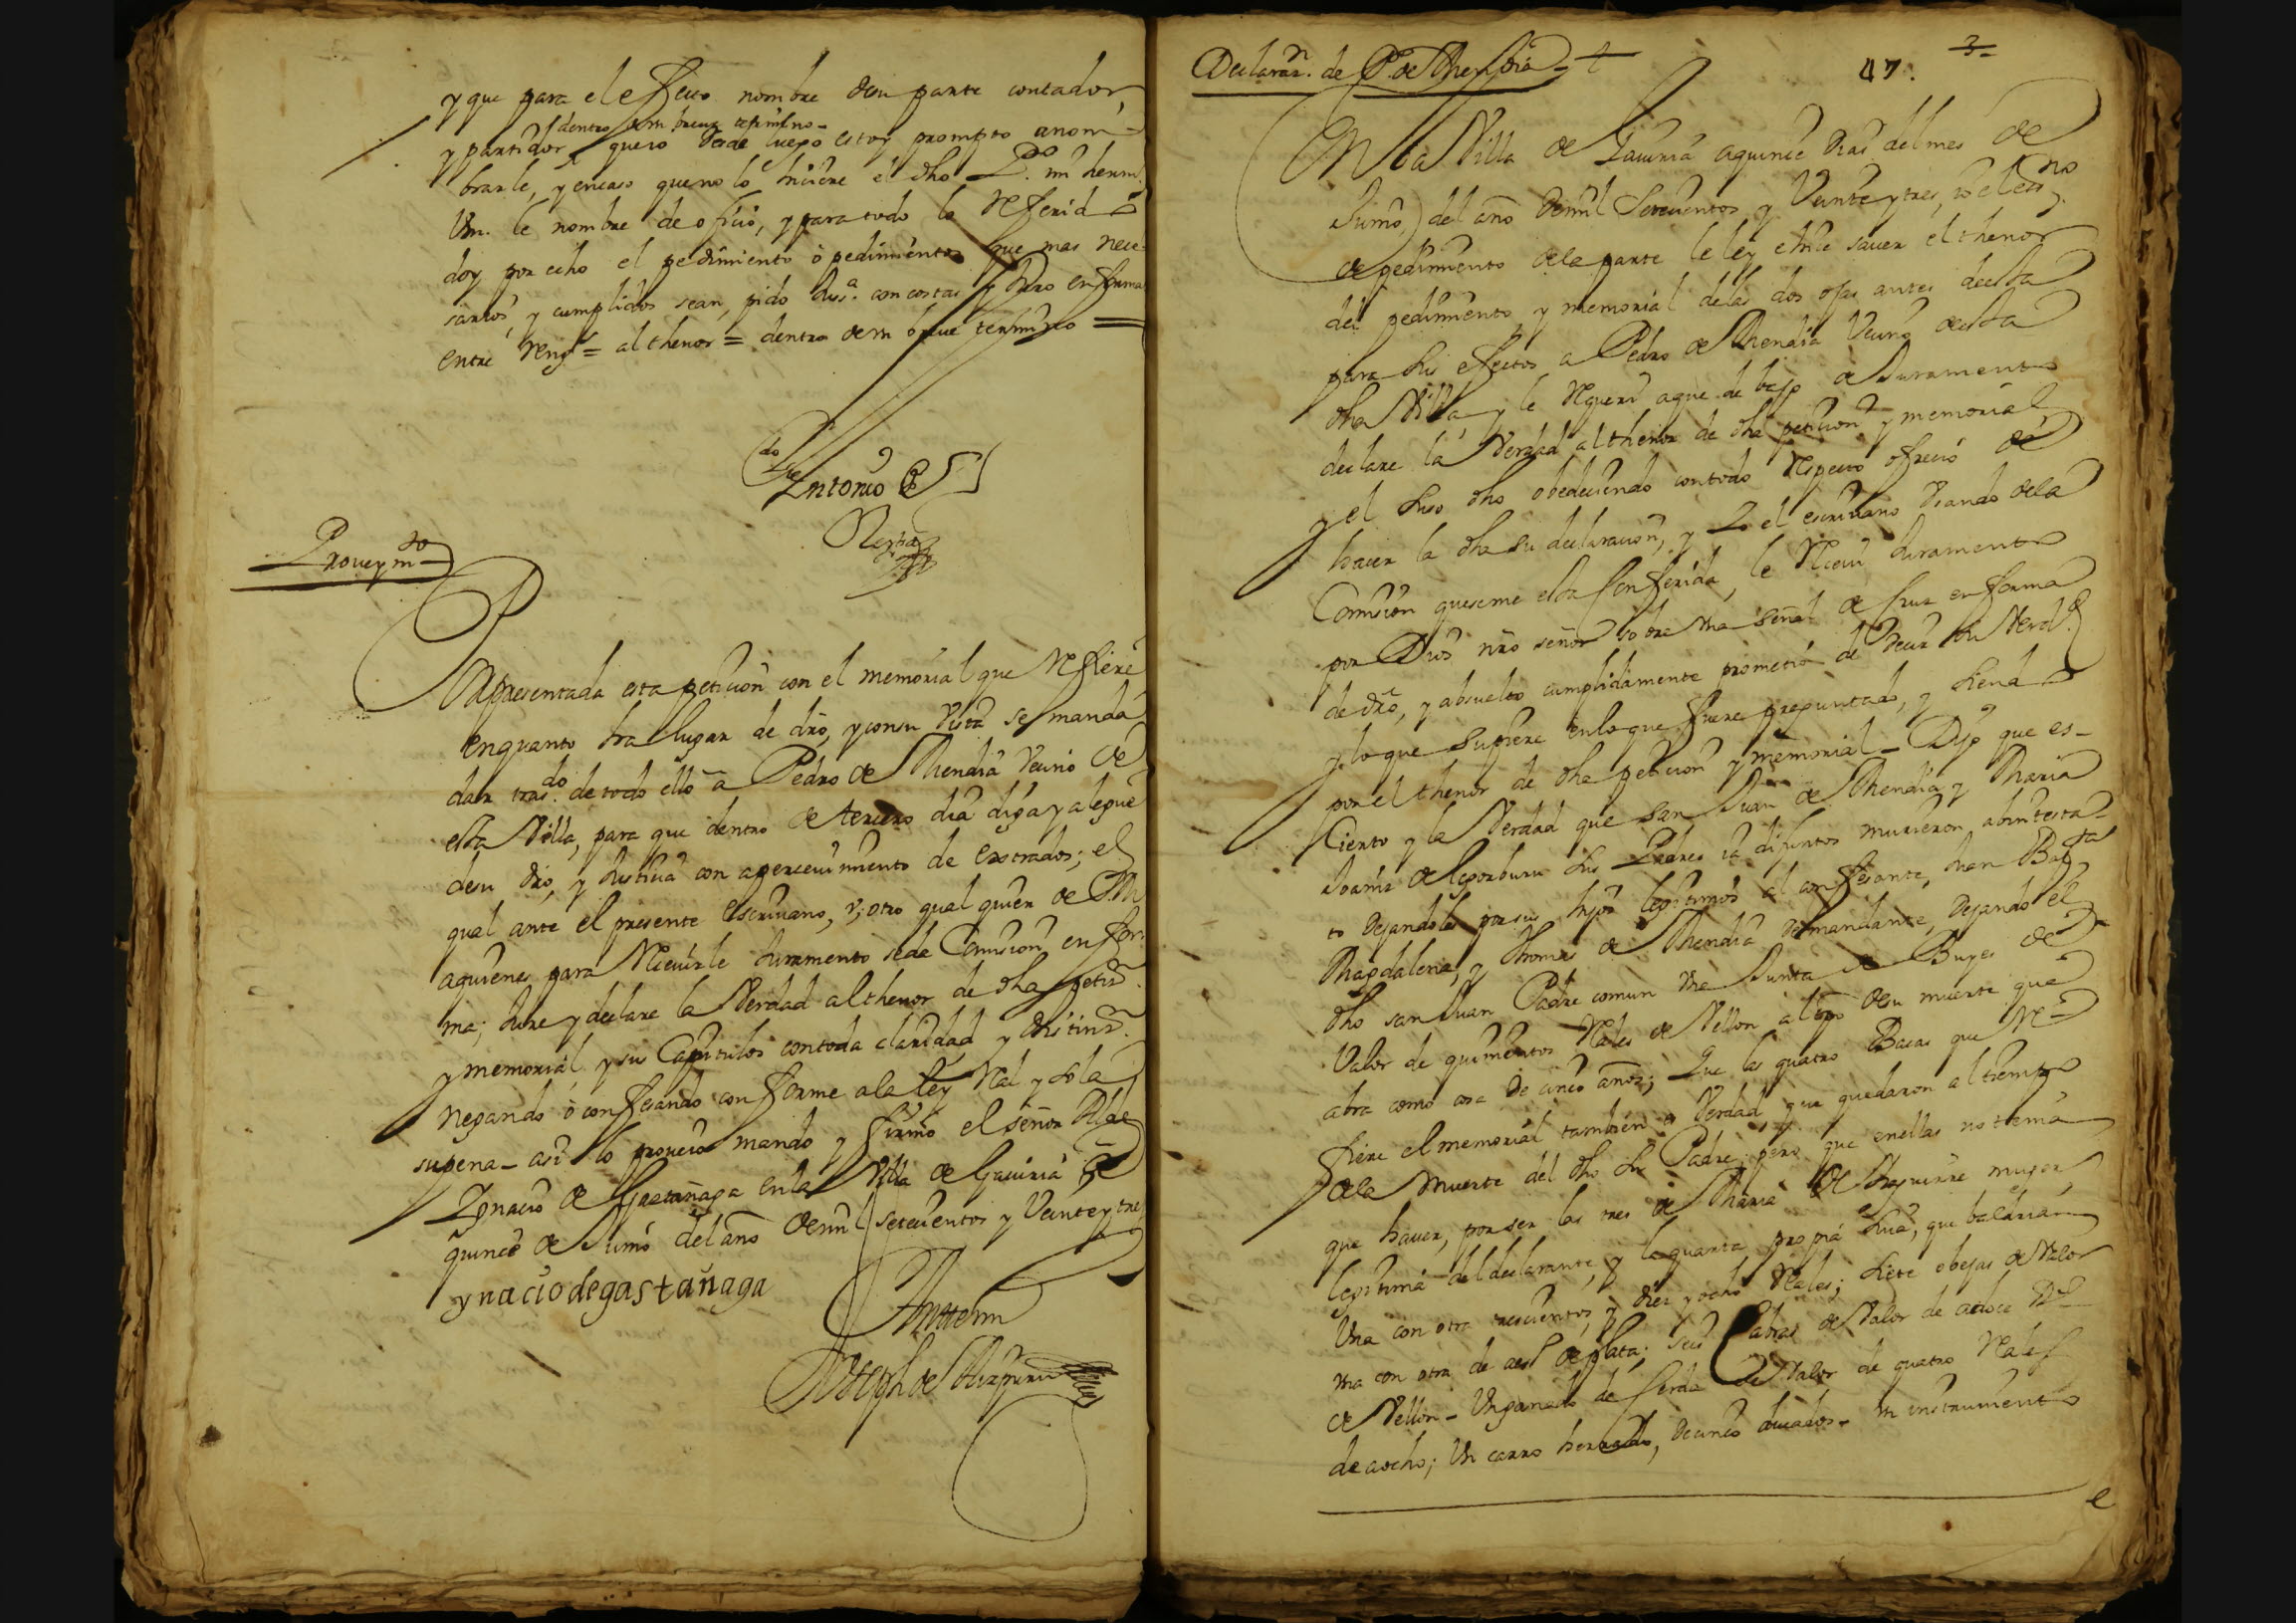 y que para el efecto nombre de su parte contador,
dentro de un breue termino
y partidor quero desde luego estoy prompto a nom-
brarle, y en caso que no lo hiciere el dho P.º mi herm.
Vm. le nombre de oficio, y para todo lo referido
doy por echo el pedimiento ò pedimientos que mas nece-
sarios, y cumplidos sean, pido Jus.ª con costas y Juro en forma
entre reng.s = al thenor = dentro de un breue termino =
Antonio de
Proueym.to
Presentada esta peticion con el memorial que refiere
en quanto ha lugar de dro, y con su vista se manda
dar tras.do de todo ello â Pedro de Mendia vecino de
esta Villa, para que dentro de tercero dia diga y alegue
de su dro, y Justicia con aperceuimiento de estrados; el
qual ante el presente escriuano, v, otro qual quier de S. M.
a quienes para reciuirle Juramento se da Comision en for-
ma; Jure y declare la Verdad al thenor de dha petin.
y memorial, y sus Capitulos con toda claridad y distinn.
negando ò confesando conforme a la ley Real y so la
su pena - asi lo proueio mando y firmo el señor Alde
Ygnacio de Gastañaga en la Villa de Gauiria a
quince de Junio del año de mil setecientos y Veinte y tres
ynacio de gastañaga
Ante mi
Joseph de
Declaran. de P.º de Mendia
47. 3
En la Villa de Gauiria a quince dias del mes de
Junio, del año de mil Setecientos y Veinte y tres, yo el essno
de pedimiento de la parte le ley e hice sauer el thenor
del pedimiento y memorial de las dos ojas antes de esta
para sus efectos a Pedro de Mendia Vecino de esta
dha Villa, y le requeri a que de bajo de Juramento
declare la Verdad al thenor de dha peticion y memorial,
y el suso dho obedeciendo con todo respecto ofrecio de
hacer la dha su declaracion, y Yo el escriuano Vsando de la
Comision que se me esta conferida, le reciui Juramento
por Dios nro señor sobre vna señal de Cruz en forma
de dro, y absuelto cumplidamente prometio de decir la Verd.d
y lo que supiere en lo que fuere preguntado, y siendo
por el thenor de dha peticion y memorial - Dijo que es -
Cierto y la Verdad que San Juan de Mendia y Maria
Joaniz de Legorburu sus Padres ya difuntos murieron abintesta-
to dejandoles por sus hijos legitimos al confesante, Juan Bap.ta
Magdalena, y Thomas de Mendia demandante, dejando el
dho san Juan Padre comun vna Junta de Buyes de
Valor de quinientos reales de Vellon al tpo de su muerte que
abra como cosa de cinco años; Que las quatro Bacas que re-
fiere el memorial tambien es Verdad, que quedaron al tiempo
de la muerte del dho su Padre; pero que en ellas no tenia
que hauer, por ser las tres de Maria de Aguirre muger
legitima del declarante, y la quarta propia suia, que baldrian
Vna con otra trescientos, y diez y ocho reales; siete obejas de Valor
vna con otra de a es.s de plata; seis Cabras de Valor de a doce Rs
de Vellon - Un ganado de serda de Valor de quatro reales
de a ocho; Un carro herrado, de cinco ducados - vn instrumento